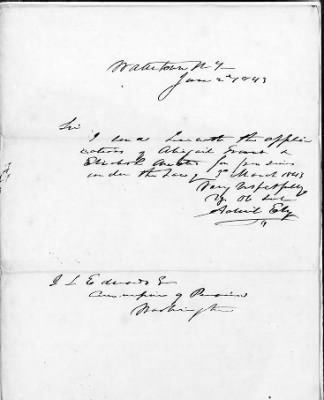 Watertown N.Y.
June 2d 1843
Sir
I send herewith the appli
cations of Abigail Evans &
for pensions
under the Law of 3d March 1843
Very respectfully
Yr Ob Sert
J L Edwards E
Commr of Pensions
Washington